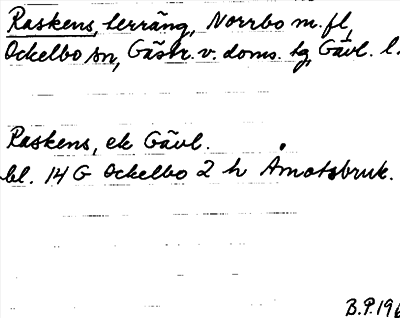 Raskens, terräng, Norrbo m. fl,
Ockelbo sn, Gästr. v. doms. tg, Gävl. l.
Raskens, ek Gävl.
bl. 14 G Ockelbo 2 h Åmotsbruk.
B.P. 196